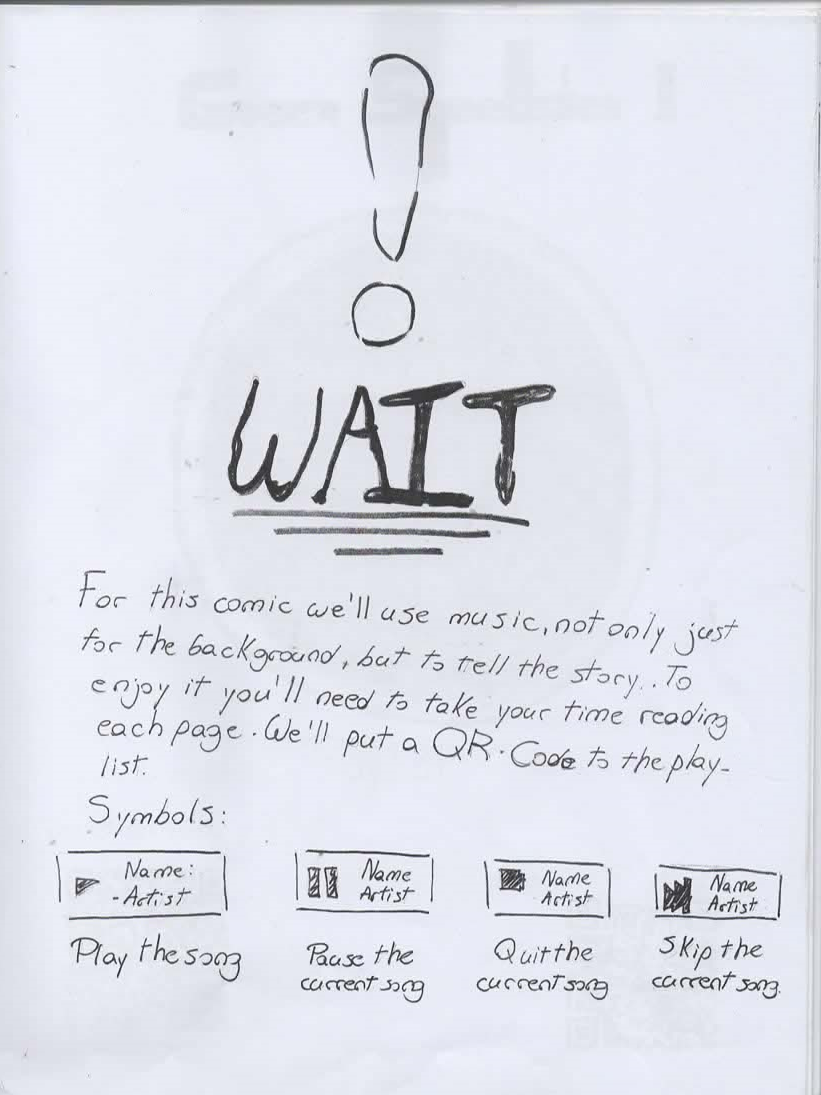 !
WAIT
For this comic we'll use music, not only just
for the background, but to tell the story.. To
enjoy it you'll need to take your time reading
each page. We'll put a QR-Code to the play-
list.
Symbols:
Name:
-Artist
Name
Artist
Name
Artist
Name
Artist
Play the song
Pause the
current song
Quit the
current song
Skip the
current song.